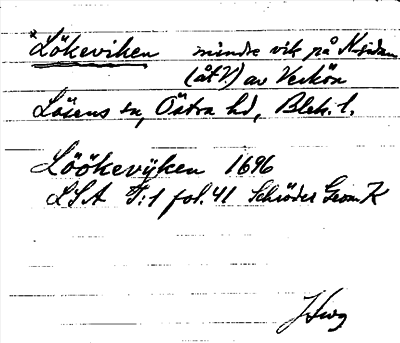 *Lökeviken mindre vik på N-sidan
(åt V.) av Verkön
Lösens sn, Östra hd, Blek. l.
Löökevÿken 1696
LSA T:1 fol. 41 Schröder Geom. K